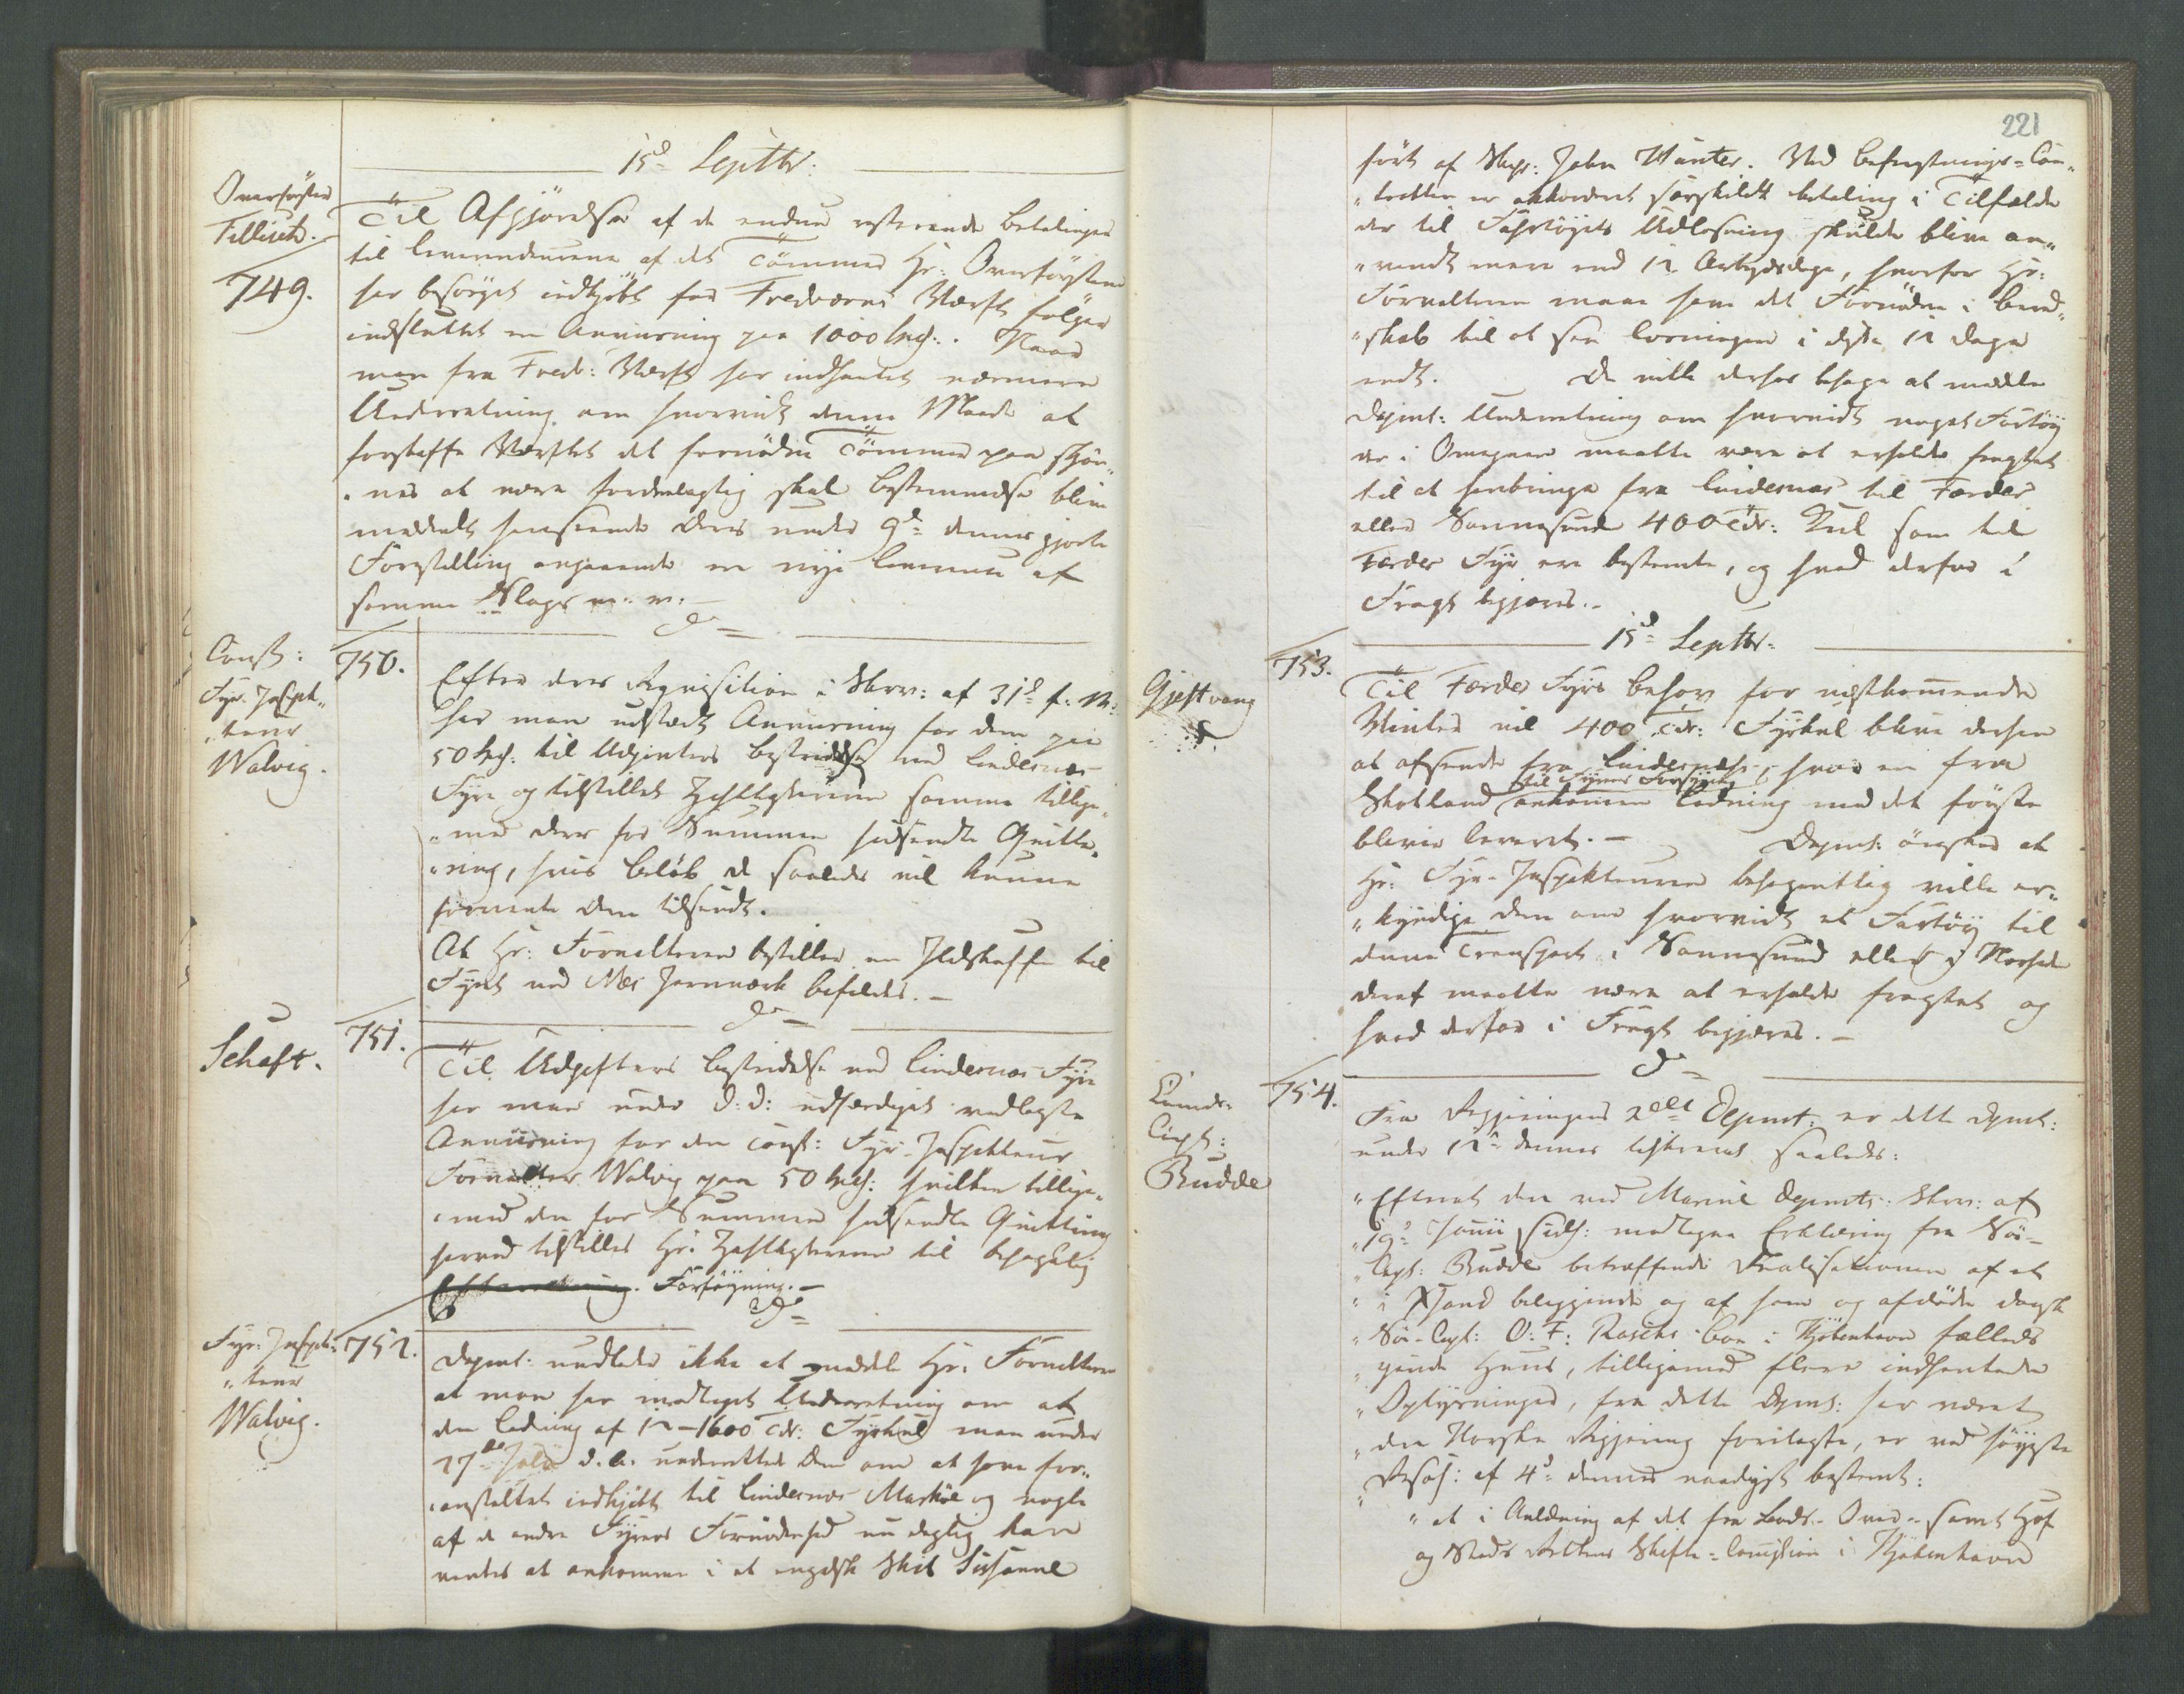 15d Septbr:
Overførster
Fillisch.
749.
Til Afgjörelse af de endnu resterende Betalinger
til Leverendeurene af det Tömmer Hr: Overförsteren
har besörget indkjöbt for Fredværns Værft følger
indsluttet en Anviisning paa 1000 Spd:. Naar
man fra Fredr: Værft har indhentet nærmere
Underretning om hvorvidt denne Maade at
forskaffe Værftet det fornödne Tömmer paa skjön„
„nes at være fordeelagtig skal Bestemmelse blive
meddelt henseende Deres under 9d dennes gjorte
Forestilling angaaende en nye Leverance af
samme Slags m. m.
d=
Const:
Fyr-Inspek„
„teur
Walvig.
750.
Efter deres Reqvisition i Skriv: af 31d f. M.
har man udstædt Anviisning for dem paa
50 Spd. til Udgivters Bestridelse ved Lindernæs
Fyr og tilstillet Zahlkasserer samme tillige„
„med deres for Summen hidsendte Quitte„
„ring, hvis Beløb De saaledes vil kunne
forvente Dem tilsendt.
At Hr: Forvalteren bestiller en Ildskuffe til
Fyret ved Næs Jernværk bifaldes.
d=
Schaft.
751.
Til Udgifters Bestridelse ved Lindernæs Fyr
har man under D: D: udfærdiget vedlagte
Anviisning for den Const: Fyr-Inspekteur
Forvalter Walvig paa 50 Spd: hvilken tillige„
„med den for Summen hidsendte Quittering
herved tilstilles Hr. Zahlkassereren til behagelig
Forføyning.
d=
Fyr-Inspek-
„teur
Walvig.
752.
Depmt: undlader ikke at meddele Hr: Forvalteren
at man har modtaget Underretning om at
den Ladning af 12–1600 Tdr: Fyrkul man under
27de Juli d. A. underrettede Dem om at have for„
„anstaltet indkjöbt til Lindernæs Markøe og nogle
af de andre Fyrenes Fornødenhed nu daglig kan
ventes at ankomme i et engelsk Skib Susanne
221
fört af Skpr: John Hunter. Ved Befragtnings-Con„
„trakten er akkorderet særskildt Betaling i Tilfælde
der til Fartöyets Udlosning skulde blive an„
„vendt mere end 12 Arbeydsdage, hvorfor Hr:
Forvalteren maae have det Fornödne i bered„
„skab til at faa Losningen i disse 12 Dage
endt. De ville derhos behage at meddele
Depmt: Underretning om hvorvidt noget Fartöy
der i Omegnen maatte være at erholde fragtet
til at henbringe fra Lindernæs til Færder
eller Vannesund 400 Tdr: Kul som til
Færder Fyr ere bestemte, og hvad derfor i
Fragt begjæres.
15d Septbr:
Gjestvang
753.
Til Færder Fyrs Behov for næstkommende
Vinter vil 400 Tdr: Fyrkul blive dertil
at afsende fra Lindernæs, hvor en fra
Skotland til Fyrenes Forsyning ankommen Ladning med det første
bliver leveret. Depmt: önsker at
Hr: Fyr-Inspekteuren behageligst ville er„
„kyndige Dem om hvorvidt et Fartöy til
denne Transport i Vannesund eller i Nærheden
deraf maatte være at erholde fragtet og
hvad derfor i Fragt begjæres.
d=
Capt:
Budde
754.
Fra Regjeringens 2det Depmt: er dette Depmt:
under 12 dennes tilskrevet saaledes:
„Efterat den ved Marine Depmts: Skriv: af
„19d Junii sidstl: modtagne Erklæring fra Söe-
„Capt: Budde betræffende Realisationen af et
„i Xsand beliggende og af ham og afdöde dansk
„Söe-Capt: O: F: Rasche Boe i Kjöbenhavn fælleds
„ejende Huus, tilligemed flere indhentede
„Oplysninger, fra dette Depmt: har været
„den Norske Regjering forelagte, er ved höyeste
„Resol: af 4d dennes naadigst bestemt:
„at i Anledning af det fra Lands-Over- samt Hof
og Stads Rettens Skifte-Comission i Kjöbenhavn